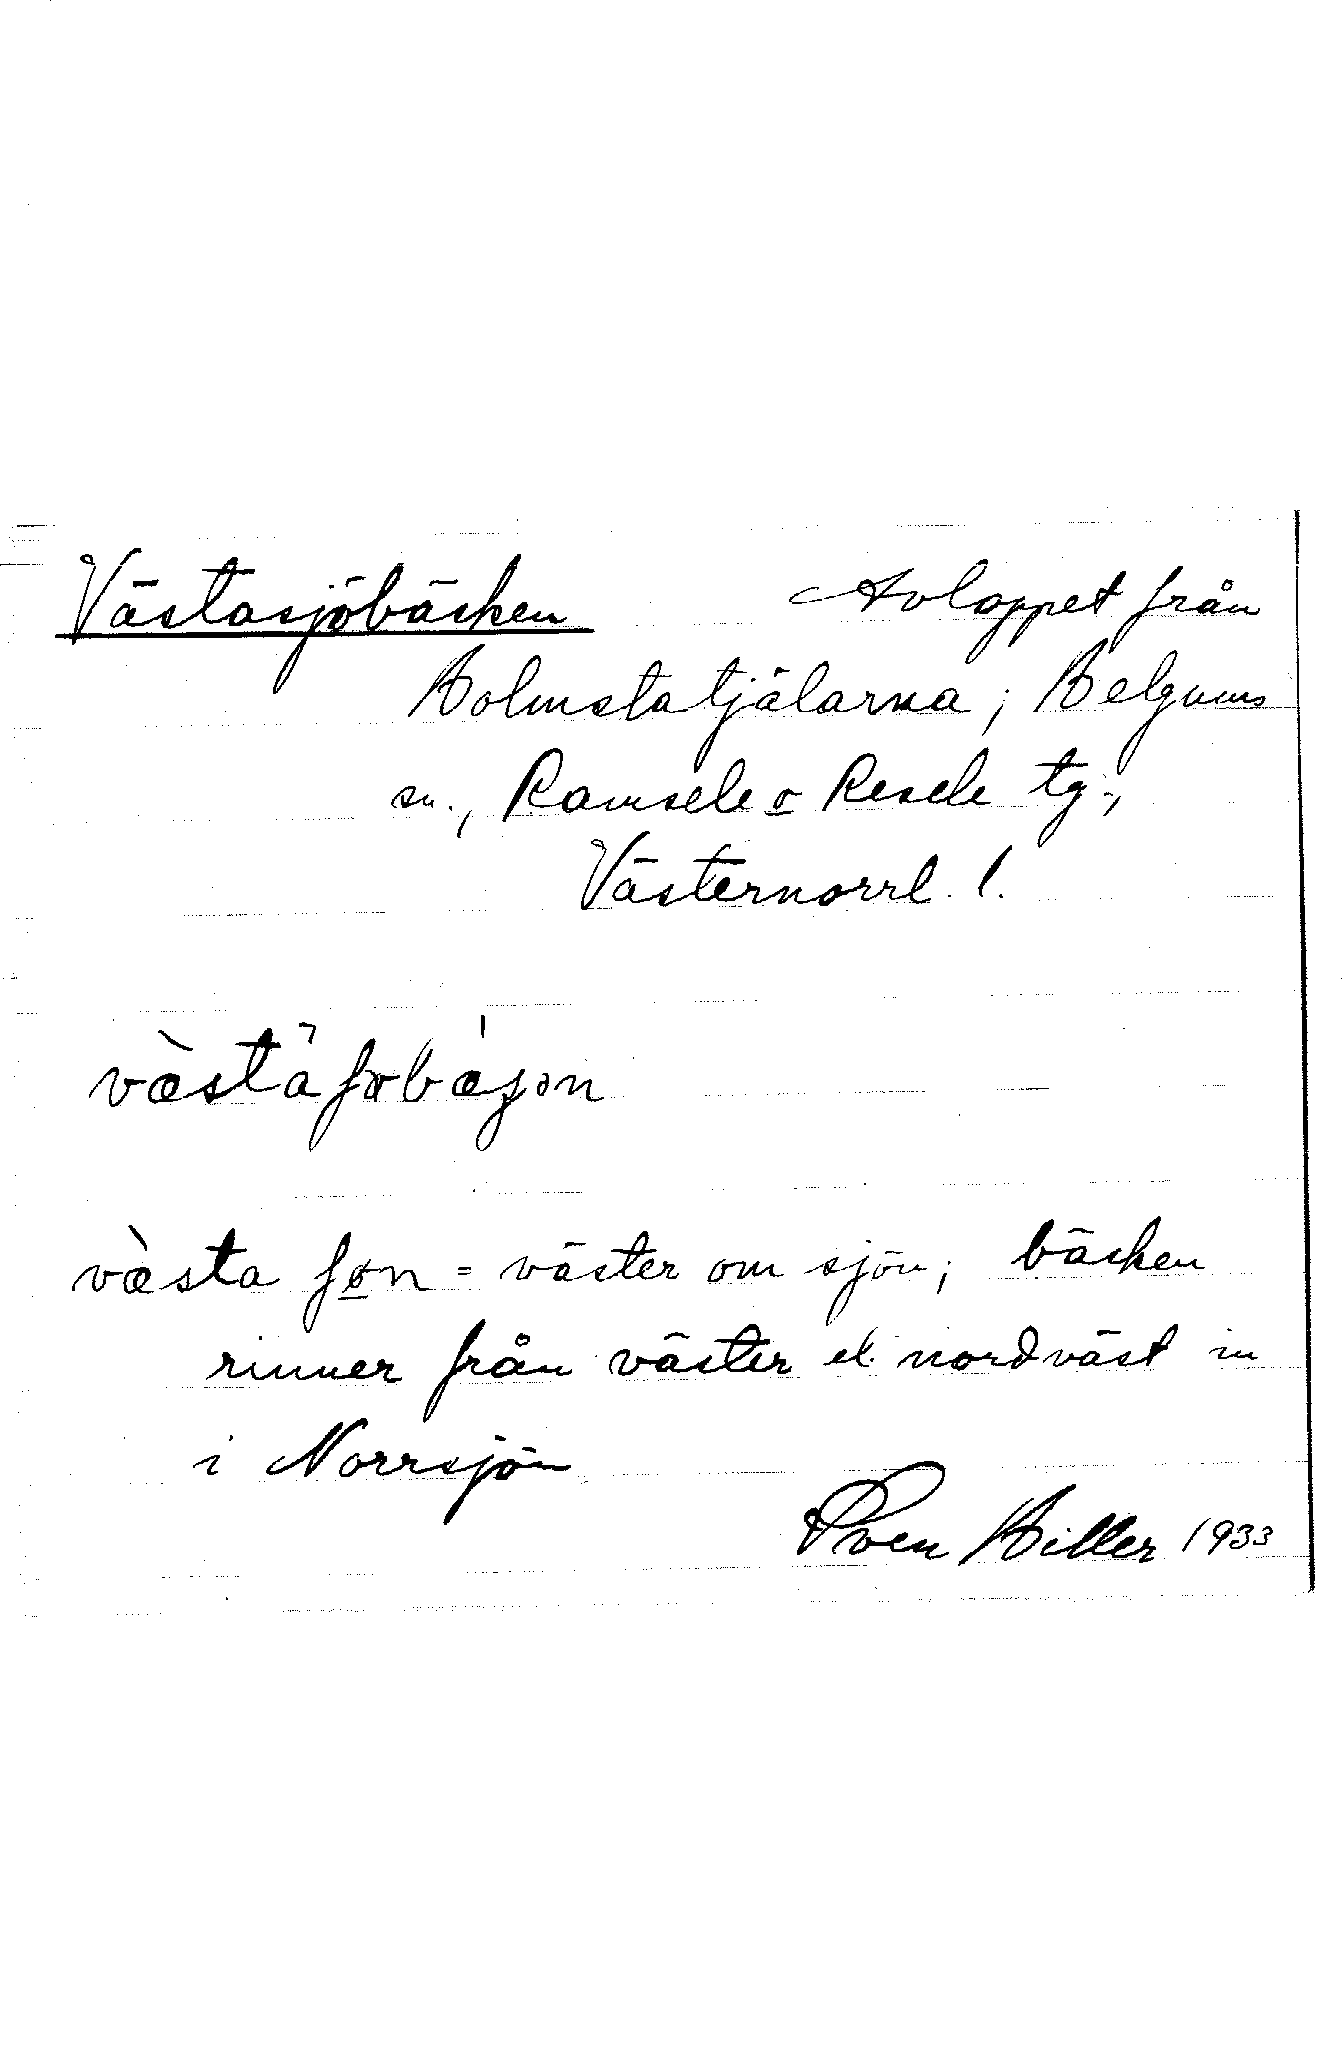 Västasjöbäcken Avloppet från
Holmstatjälarna; Helgums
sn., Ramsele o Resele tg.,
Västernorrl. l.
västa = väster om sjön; bäcken
rinner från väster el. nordväst in
i Norrsjön
Sven Hiller 1933